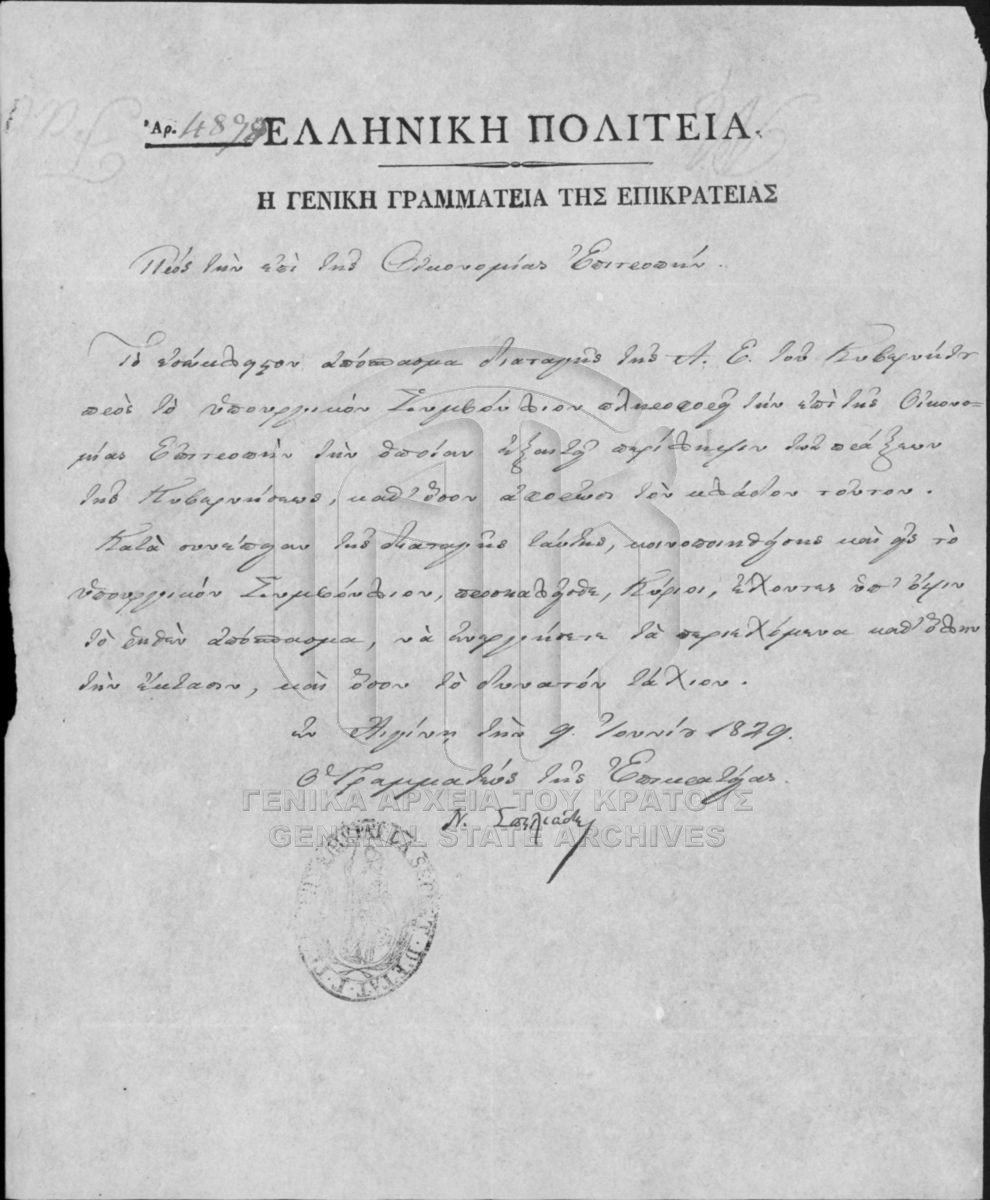 Ἀρ. 4898
ΕΛΛΗΝΙΚΗ ΠΟΛΙΤΕΙΑ.
Η ΓΕΝΙΚΗ ΓΡΑΜΜΑΤΕΙΑ ΤΗΣ ΕΠΙΚΡΑΤΕΙΑΣ
Πρὸς τὴν ἐπὶ τῆς Οἰκονομίας Ἐπιτροπήν.
Τὸ ἐσώκλειστον ἀπόσπασμα διαταγῆς τῆς Α. Ε. τοῦ Κυβερνήτου
πρὸς τὸ ὑπουργικὸν Συμβούλιον πληροφορεῖ τὴν ἐπὶ τῆς Οἰκονο=
μίας Ἐπιτροπὴν τὴν ὁποίαν ἐξαιτεῖ περίληψιν τῶν πράξεων
τῆς Κυβερνήσεως, καθ' ὅσον ἀφορῶσι τὸν κλάδον τοῦτον.
Κατὰ συνέπειαν τῆς διαταγῆς ταύτης, κοινοποιηθείσης καὶ εἰς τὸ
ὑπουργικὸν Συμβούλιον, προσκαλεῖσθε, Κύριοι, ἔχοντες ὑπ' ὄψιν
τὸ ῥηθὲν ἀπόσπασμα, νὰ ἐνεργήσετε τὰ περιεχόμενα καθ' ὅλην
τὴν ἔκτασιν, καὶ ὅσον τὸ δυνατόν τάχιον.
ἐν Αἰγίνῃ τὴν 9. Ἰουνίου 1829.
Ὁ Γραμματεὺς τῆς Ἐπικρατείας.
Ν. Σπηλιάδης
ΓΕΝΙΚΑ ΑΡΧΕΙΑ ΤΟΥ ΚΡΑΤΟΥΣ
GENERAL STATE ARCHIVES
LA SECRET. D'ETAT